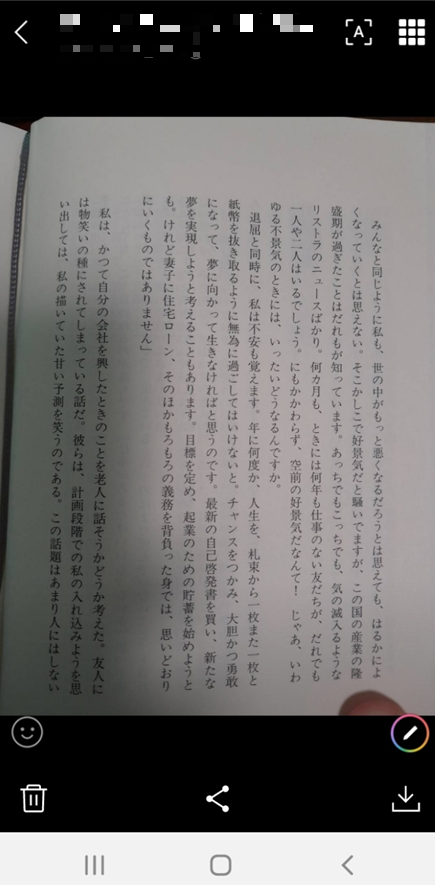 A
みんなと同じように私も、世の中がもっと悪くなるだろうとは思えても、はるかによ
くなっていくとは思えない。そこかしこで好景気だと騒いでますが、この国の産業の隆
盛期が過ぎたことはだれもが知っています。あっちでもこっちでも、気の滅入るような
リストラのニュースばかり。何カ月も、ときには何年も仕事のない友だちが、だれでも
一人や二人はいるでしょう。にもかかわらず、空前の好景気だなんて！　じゃあ、いわ
ゆる不景気のときには、いったいどうなるんですか。
退屈と同時に、私は不安も覚えます。年に何度か、人生を、札束から一枚また一枚と
紙幣を抜き取るように無為に過ごしてはいけないと、チャンスをつかみ、大胆かつ勇敢
になって、夢に向かって生きなければと思うのです。最新の自己啓発書を買い、新たな
夢を実現しようと考えることもあります。目標を定め、起業のための貯蓄を始めようと
も。けれど妻子に住宅ローン、そのほかもろもろの義務を背負った身では、思いどおり
にいくものではありません」
私は、かつて自分の会社を興したときのことを老人に話そうかどうか考えた。友人に
は物笑いの種にされてしまっている話だ。彼らは、計画段階での私の入れ込みようを思
い出しては、私の描いていた甘い予測を笑うのである。この話題はあまり人にはしない